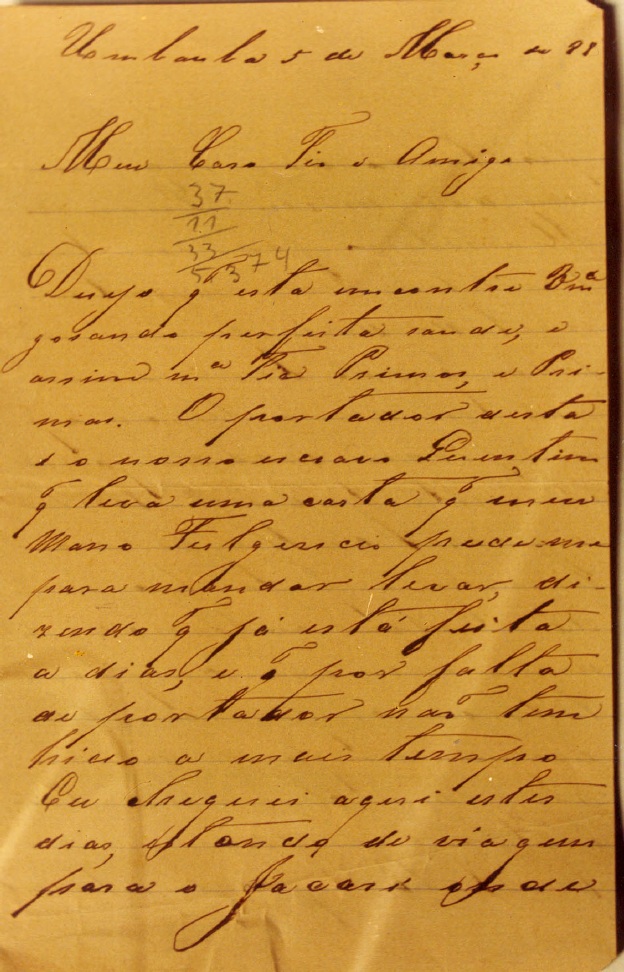 Umbauba 5 de Março de 81
Meu Caro Tio e Amigo
37
11
33
5374
Dezejo q̃ esta encontre Vm.ᶜᵉ
gosando perfeita saude, e
assim m.ª Tia Primos, e Pri-
mas. O portador desta
é o nosso escravo Quintin
q̃ leva uma carta q̃ meu
Mano Fulgencio pede-me
para mandar levar, di-
zendo q̃ já está feita
a dias, e q̃ por falta
de portador não tem
hido a mais tempo
Eu cheguei aqui estes
dias, estando de viagem
para o Jacaré onde